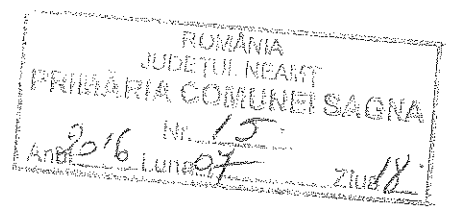 ROMÂNIA
JUDEŢUL NEAMŢ
PRIMĂRIA COMUNEI SAGNA
Nr. 15
Anul 2016 Luna 07 Ziua 18